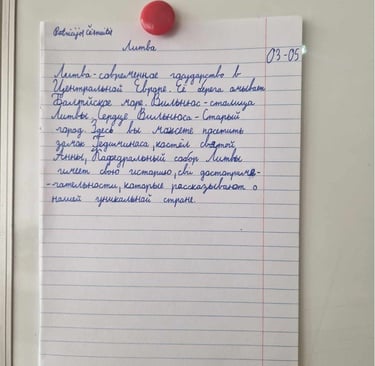 Литва
03-05
Литва-современное государство в
Центральной Европе. Её берега омывает
Балтийское море. Вильнюс-столица
Литвы. Сердце Вильнюса-Старый
город. Здесь вы можете посетить
замок Гедиминаса, костёл святой
Анны, Кафедральный собор. Литва
имеет свою историю, свои достопреме-
-чательности, которые рассказывают о
нашей уникальной стране.